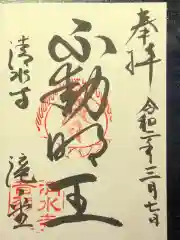 奉拝
令和二年三月七日
不動明王
清水寺
滝之堂